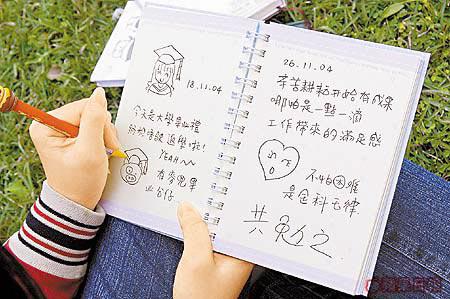 18.11.04
今天是大學畢業禮
YEAH~~
有麥兜畢
业公仔
26.11.04
辛苦耕耘开始有成果
哪怕是一點一滴
工作帶來的滿足感
不怕困難
是金科玉律
共勉之